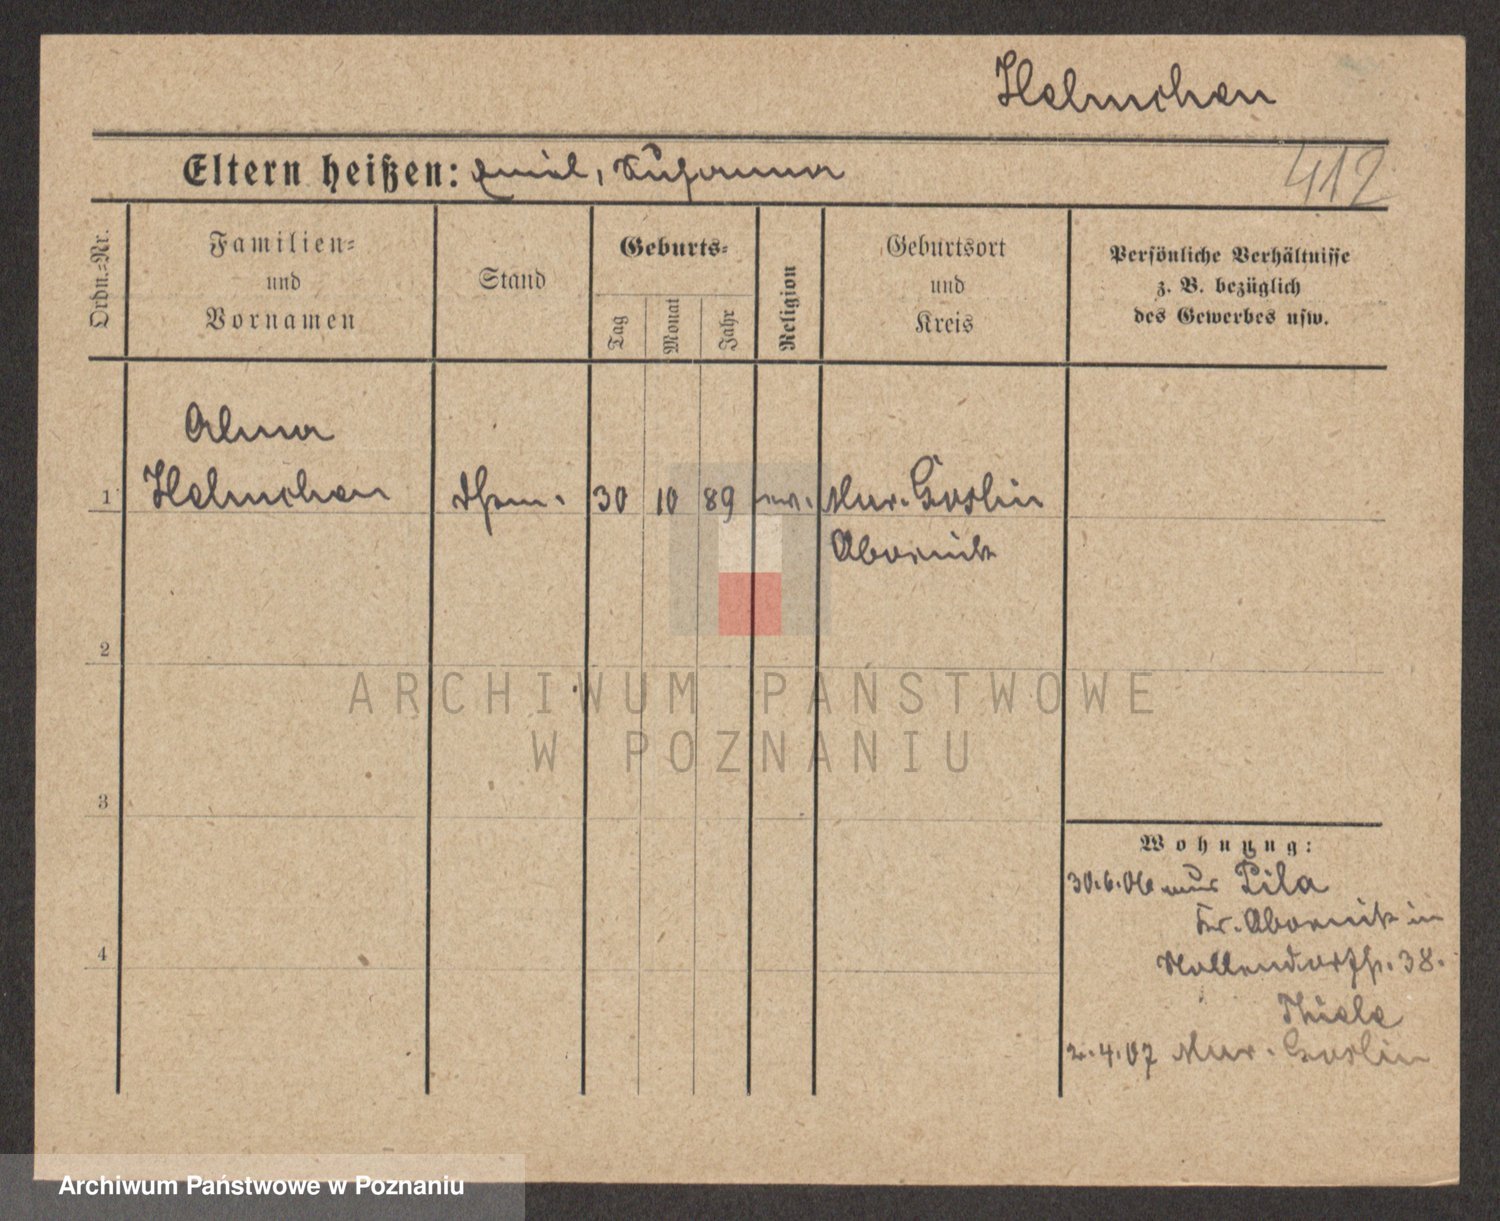 Helmchen
Eltern heißen: Emil, Susanna
412
Ordn.=Nr.
Familien=
und
Vornamen
Stand
Geburts=
Tag
Monat
Jahr
Religion
Geburtsort
und
Kreis
Persönliche Verhältnisse
z. B. bezüglich
des Gewerbes usw.
Alma
1 Helmchen 30 10 89 ev. Mur. Goslin
Obornik
2
3
4
Wohnung:
30.6.06 aus Pila
Kr. Obornik in
Nollendorfstr. 38.
Thiele
2.4.07 Mur. Goslin
ARCHIWUM PAŃSTWOWE
W POZNANIU
Archiwum Państwowe w Poznaniu